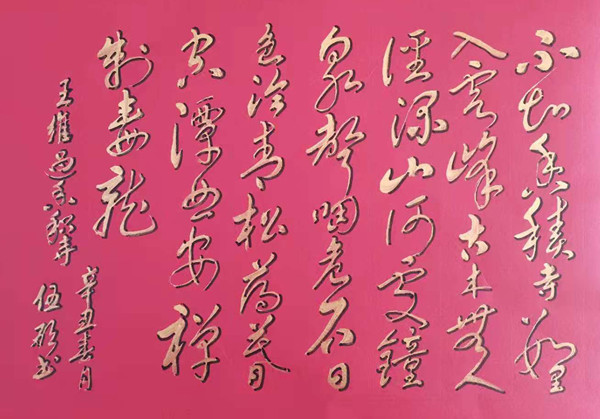 不知香積寺數里
入雲峰古木無人
徑深山何處鐘
泉聲咽危石日
色冷青松薄暮
空潭曲安禪
制毒龍
王維過香積寺
辛丑春月
伍書